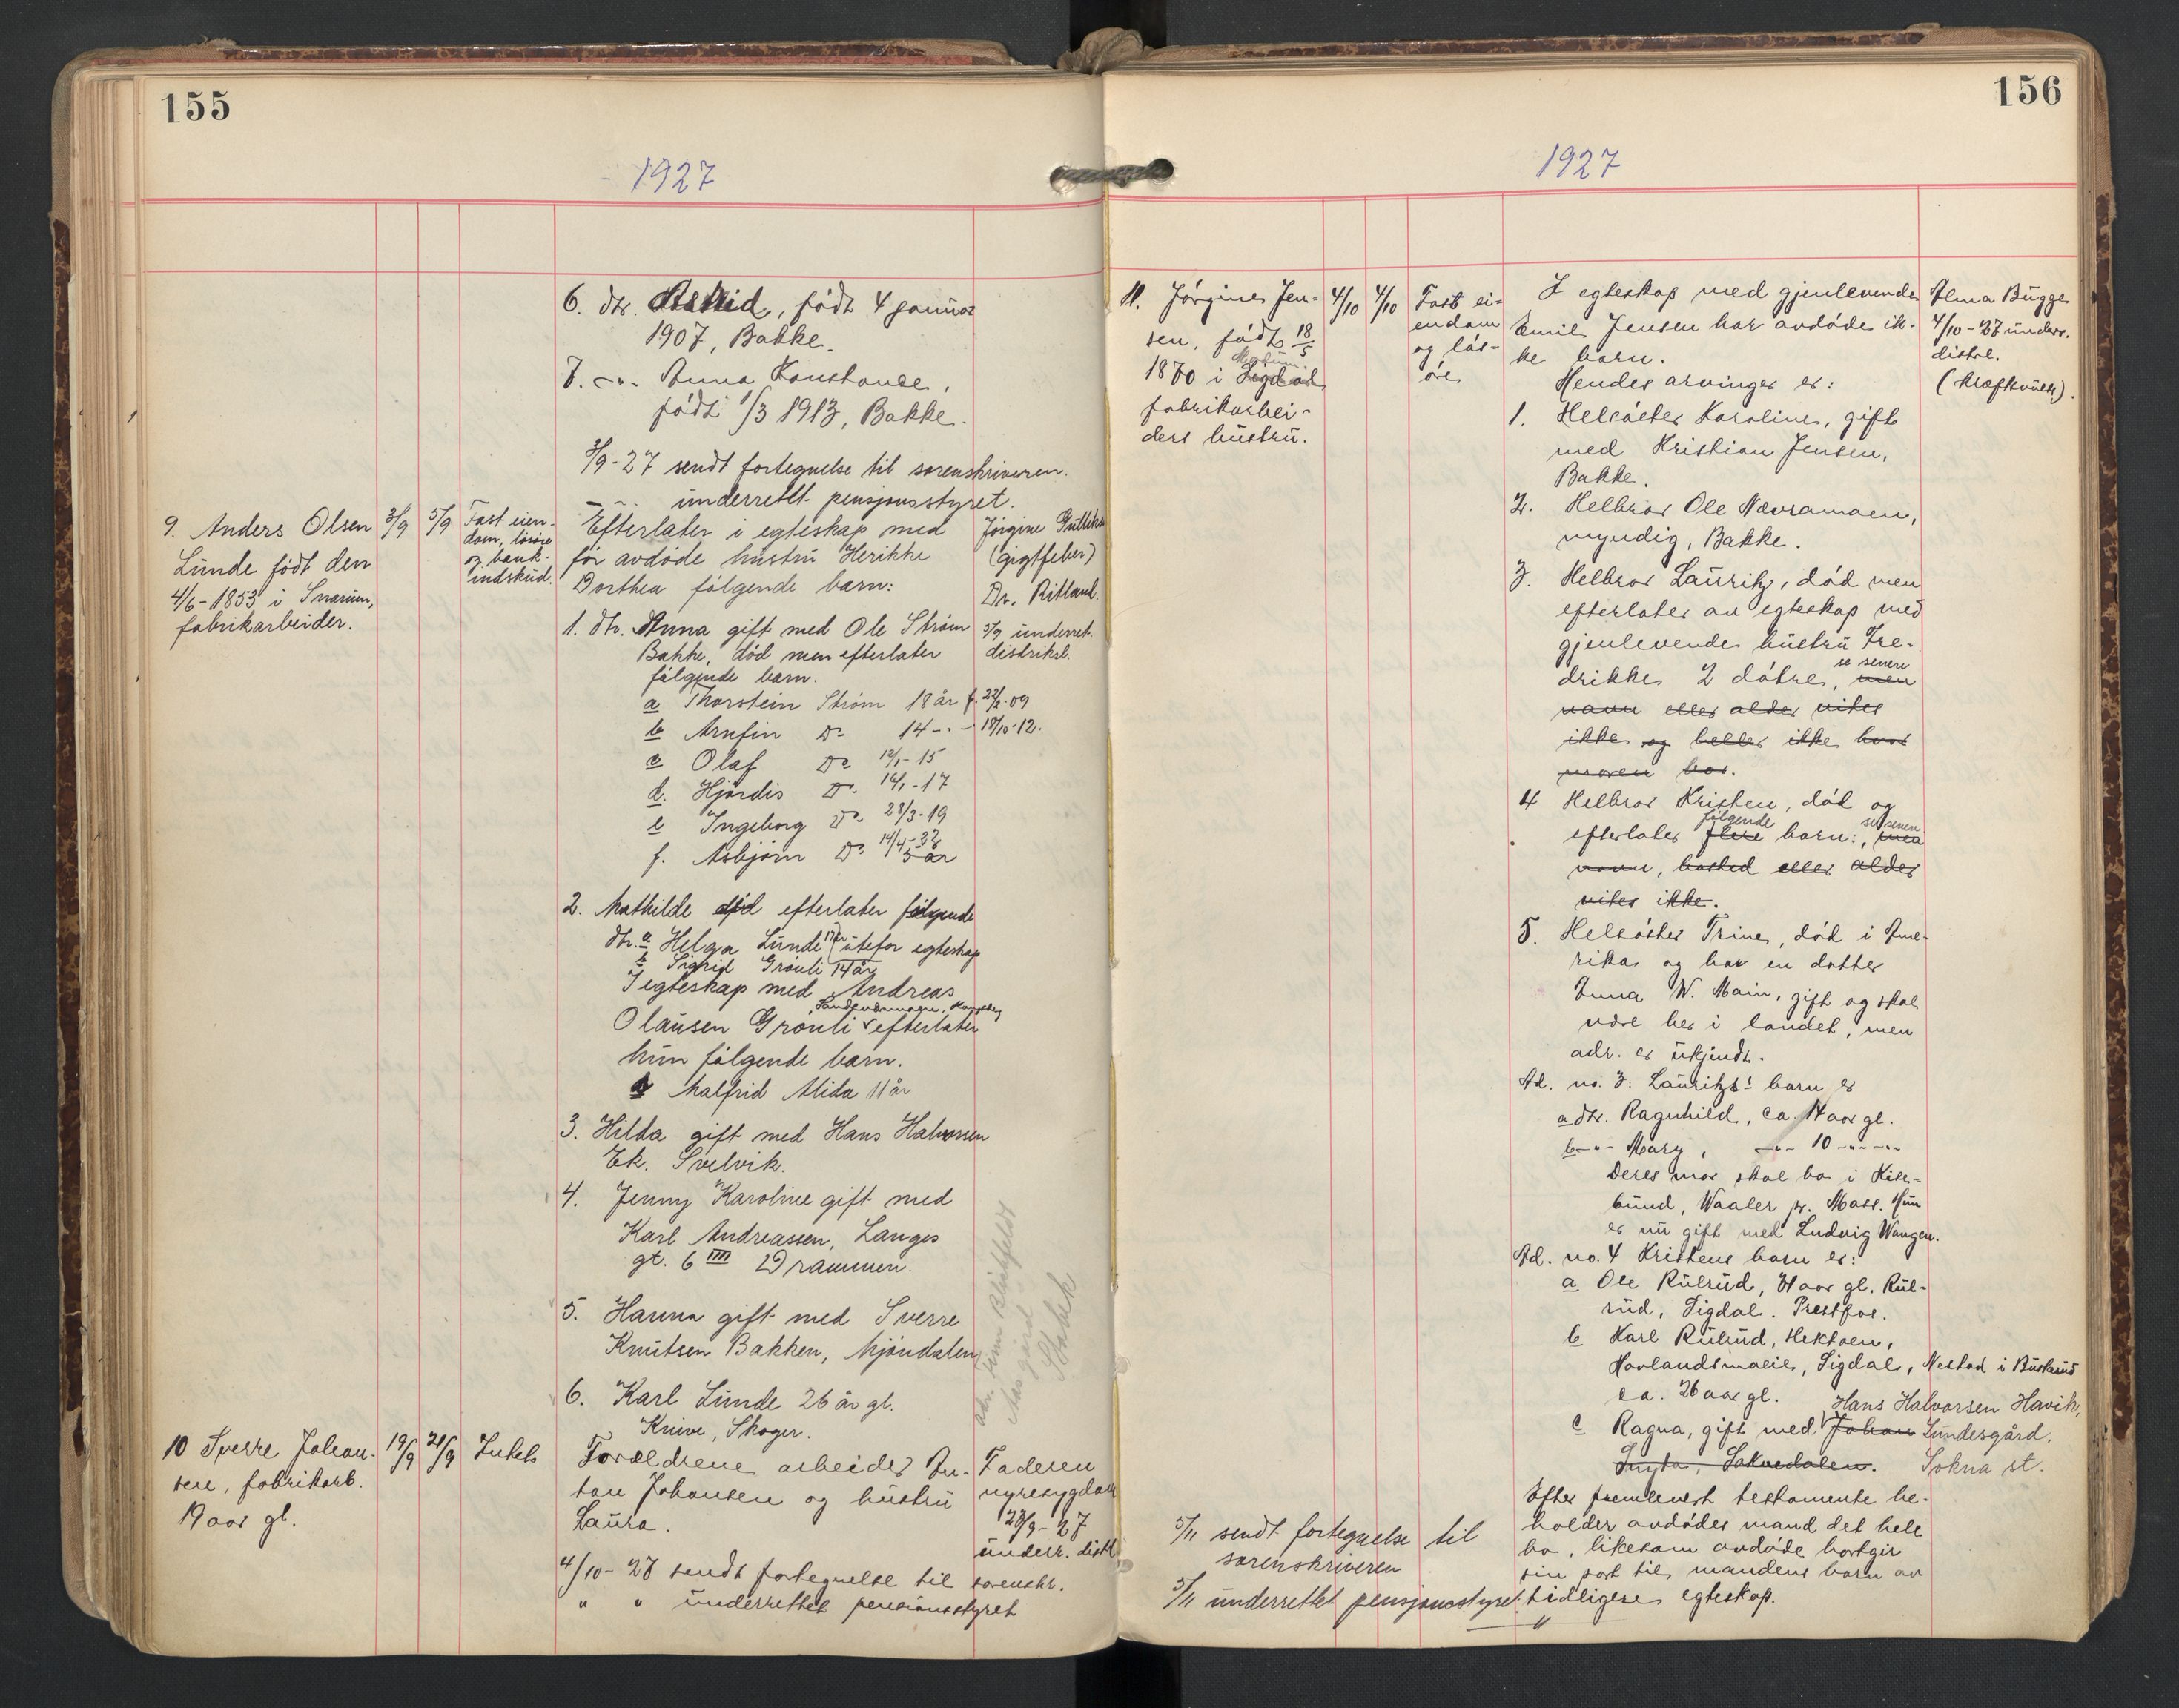 155
1927
6. dtr. Astrid, født 4 januar
1907, Bakke.
7. -"- Anna Konstanse,
født 1/3 1913, Bakke.
3/9-27 sendt fortegnelse til sorenskriveren.
- - underrettet pensjonsstyret.
9. Anders Olsen
Lunde født den
4/6-1853 i Snarum,
fabrikarbeider.
3/9
5/9
Fast eien-
dom, løsøre
og bank-
indskud.
Efterlater i egteskap med
før avdøde hustru Henrikke
Dorthea følgende barn:
Jørgine Gulliks
(gigtfeber)
Dr. Ritland.
5/9 underret.
distriksl.
1. dtr. Anna gift med Ole Strøm
Bakke, død men efterlater
følgende barn.
a Thorstein Strøm 18 år f. 22/2-09
b Arnfin Do 14 - - 18/10-12.
c Olaf Do 12/1-15
d. Hjørdis Do 14/1-17
e Ingeborg Do 28/3-19
f. Asbjørn Do 14/4-22
5 år
2. Mathilde død efterlater følgende
dtr. a Helga Lunde 17 år utefor egteskap
b Sigrid Grønli 14 år
I egteskap med Andreas
Olausen Grønli efterlater
hun følgende barn.
a Malfrid Alida 11 år
3. Hilda gift med Hans Halvorsen
Ek. Svelvik.
4. Jenny Karoline gift med
Karl Andreassen, Langes
gt. 6 III Drammen.
5. Hanna gift med Sverre
Knutsen Bakken, Mjøndalen
6. Karl Lunde 26 år gl.
Knive, Skoger.
10 Sverre Johan-
sen, fabrikarb.
19 aar gl.
19/9
21/9
Intet
Forældrene arbeider An-
ton Johansen og hustru
Laura.
Faderen
nyresygdom
23/9-27
underr. distl.
4/10-27 sendt fortegnelse til sorenskr.
" " underrettet pensionsstyret
156
1927
11. Jørgine Jen-
sen, født 18/5
Modum
1870 i Sigdal
fabrikarbei-
ders hustru.
4/10
4/10
Fast ei-
endom
og løs-
øre
I egteskap med gjenlevende
Emil Jensen har avdøde ik-
ke barn.
Hendes arvinger er:
Alma Bugge
4/10-27 underr.
distrl.
(kræftsvulst).
1. Helsøster Karoline, gift
med Kristian Jensen,
Bakke.
2. Helbror Ole Nævramoen,
myndig, Bakke.
3. Helbror Lauritz, død men
efterlater av egteskap med
gjenlevende hustru Fre-
se senere
drikke 2 døtre, men
navn eller alder vites
ikke og heller ikke hvor
moren bor.
4 Helbror Kristen, død og
følgende se senere
efterlater flere barn:, men
navn, bosted eller alder
vites ikke.
5. Helsøster Trine, død i Ame-
rika og har en datter
Anna W. Main, gift og skal
være her i landet, men
adr. er ukjendt.
Ad. no. 3: Lauritz's barn er
a dtr. Ragnhild, ca. 14 aar gl.
b -"- Mary, -"- 10 -"-"-
Deres mor skal bo i Kise-
bund, Waaler pr. Moss. Hun
er nu gift med Ludvig Wangen.
Ad. no. 4 Kristens barn er:
a Ole Rulrud, 31 aar gl. Rul-
rud, Sigdal. Prestfos.
b Karl Rulrud, Hektoen,
Hovlandsmoeie, Sigdal, Nestad i Buskerud
ca. 26 aar gl.
Hans Halvorsen Havik,
c Ragna, gift med Johan Lundesgård,
Snyta, Soknedalen. Sokna st.
Efter fremlevert testamente be-
holder avdødes mand det hele
bo, likesom avdøde bortgir
sin part til mandens barn av
tidligere egteskap.
5/11 sendt fortegnelse til
sorenskriveren
5/11 underrettet pensjonsstyret.